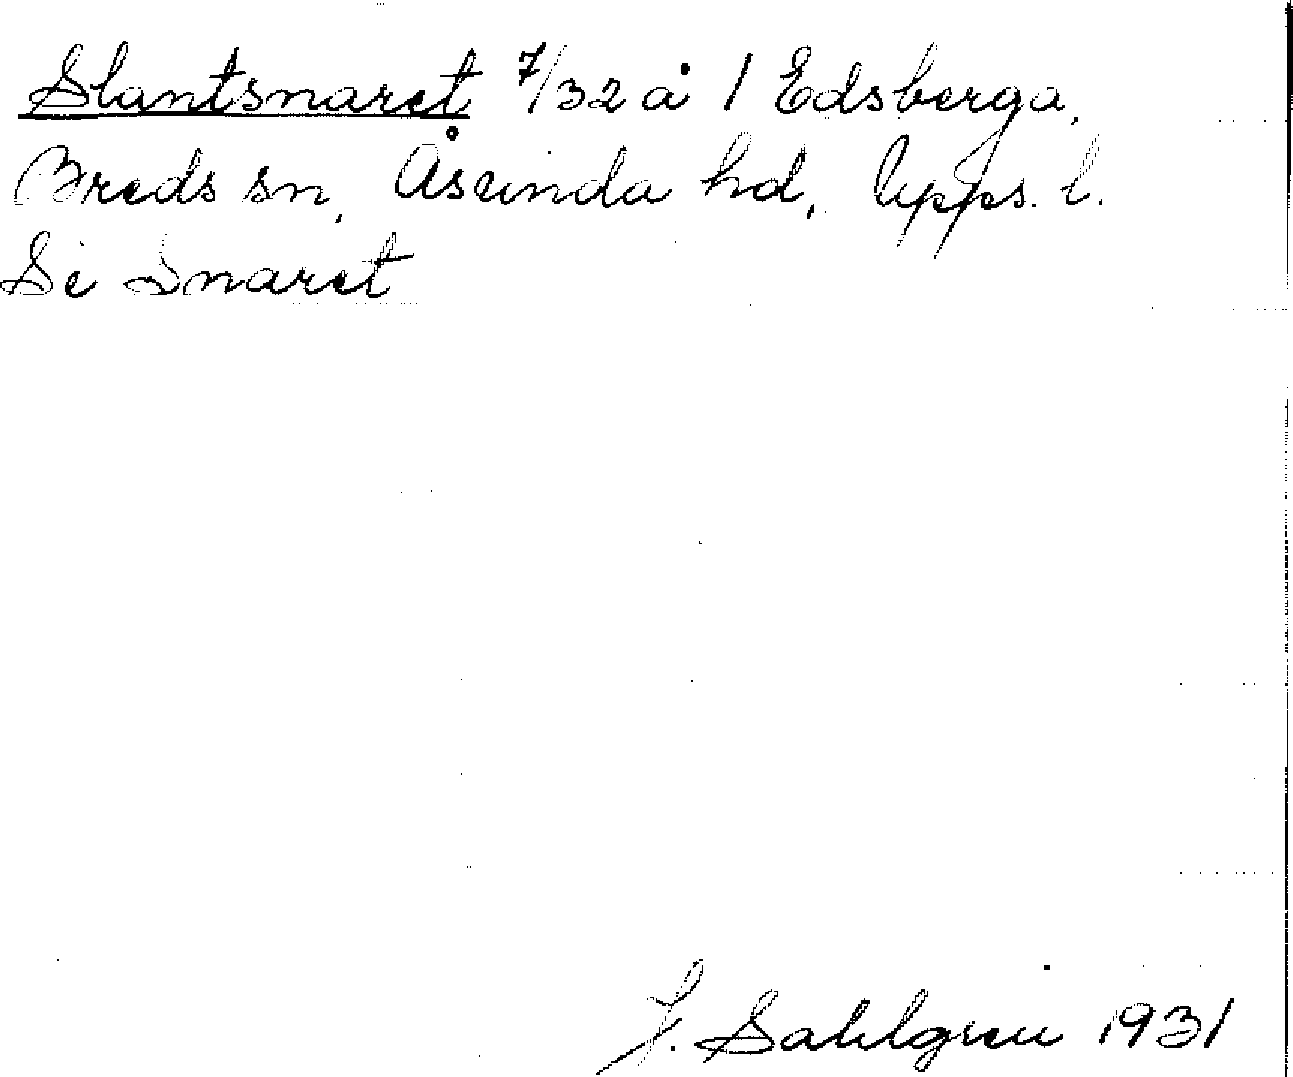 Slantsnaret 7/32 å 1 Edsberga,
Breds sn, Åsunda hd, Upps. l.
Se Snaret
J. Sahlgren 1931